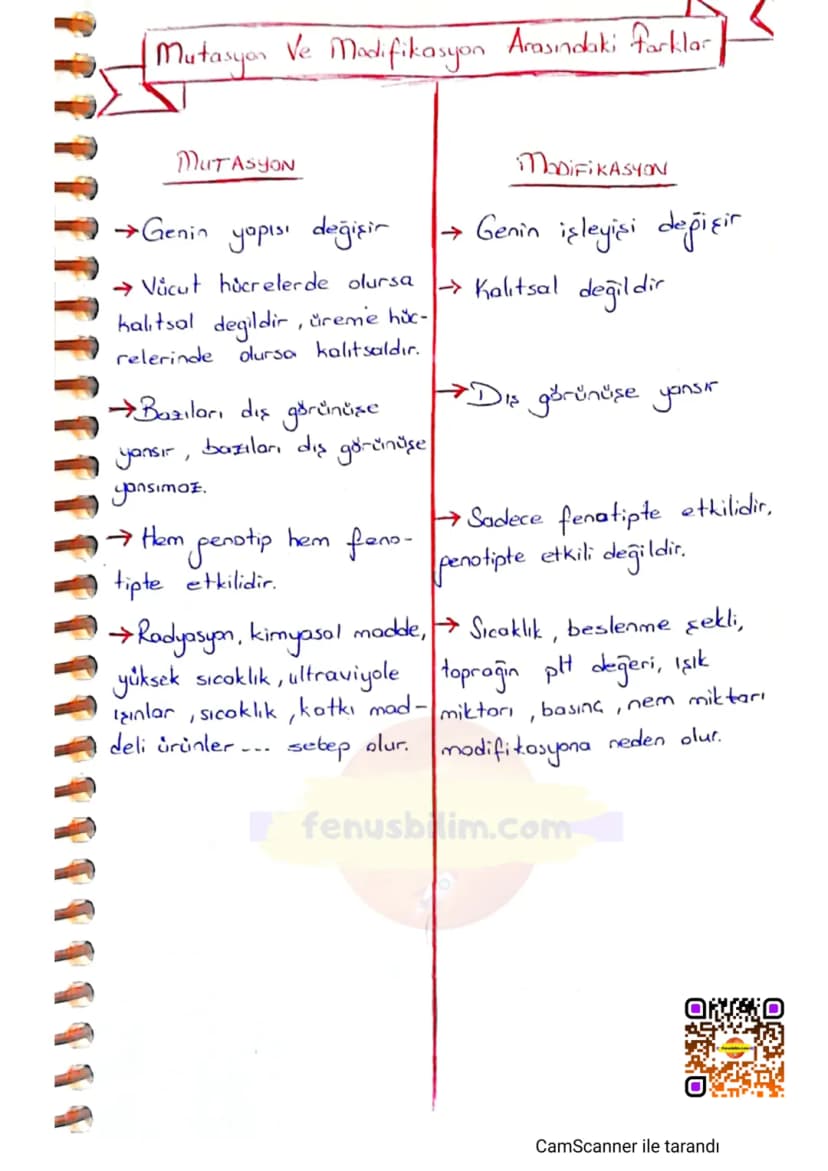 Mutasyon Ve Modifikasyon Arasındaki Farklar
MUTASYON
→Genin yapısı değişir
→ Vücut hücrelerde olursa
kalıtsal degildir, üreme hüc-
relerinde olursa kalıtsaldır.
→Bazıları dış görünüşe
yansır, bazıları dış görünüşe
yansımaz.
→ Hem genotip hem feno-
tipte etkilidir.
→Radyasyon, kimyasal madde,
yüksek sıcaklık, ultraviyole
ışınlar, sıcaklık, katkı mad-
deli ürünler --- sebep olur.
MODİFİKASYON
→ Genin işleyişi değişir
→ Kalıtsal değildir
→Dış görünüşe yansır
→ Sadece fenotipte etkilidir,
genotipte etkili değildir.
→ Sıcaklık, beslenme şekli,
toprağın pH değeri, ışık
miktarı, basınç, nem miktarı
modifikasyona neden olur.
fenusbilim.com
fenusbilim.com
CamScanner ile tarandı